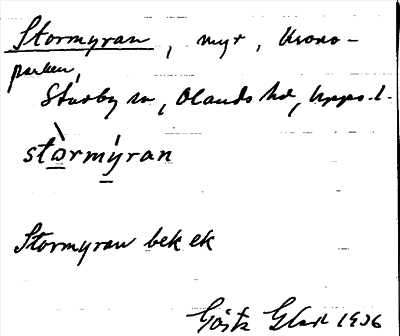 Stormyran, myr, Krono-
parken,
Stavby sn, Olands hd, Upps. l.
stòrmýran
Stormyran bek ek
Gösta 1936